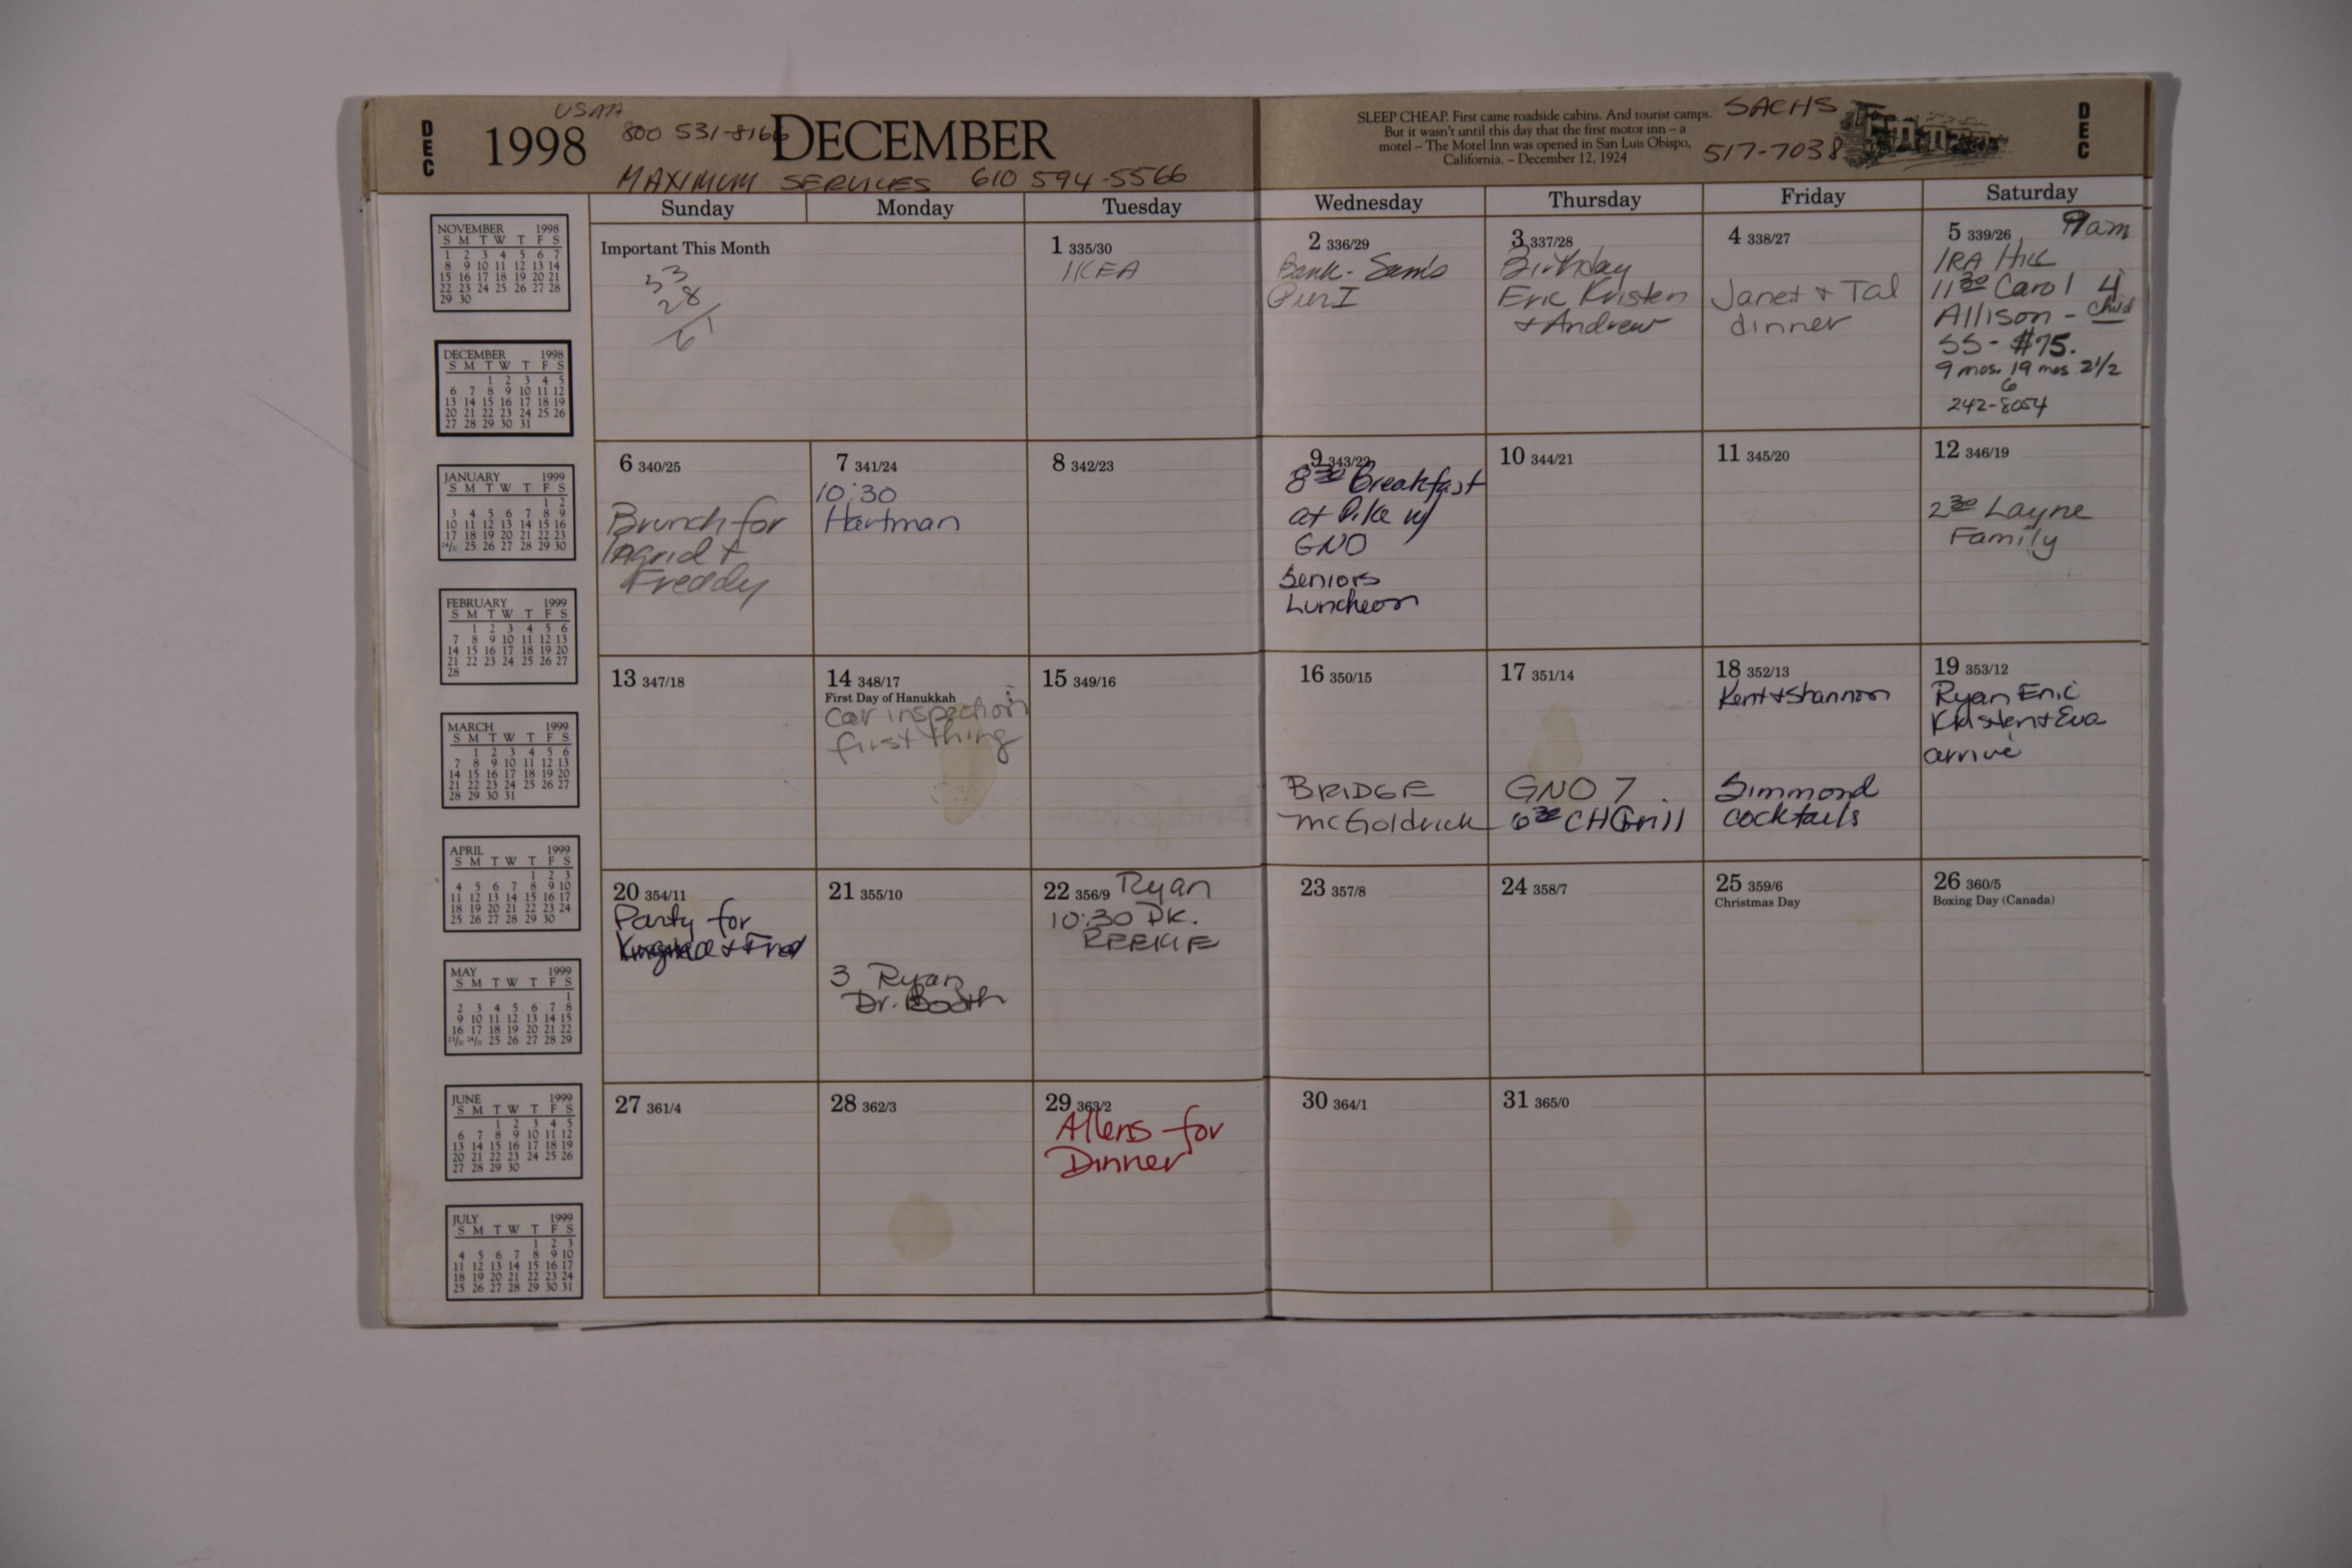 DEC
1998
USAA
800 531-8166
DECEMBER
MAXIMUM SERVICES 610 594-5566
SLEEP CHEAP. First came roadside cabins. And tourist camps.
But it wasn't until this day that the first motor inn – a
motel – The Motel Inn was opened in San Luis Obispo,
California. – December 12, 1924
SACHS
517-7038
DEC
NOVEMBER 1998
S M T W T F S
1 2 3 4 5 6 7
8 9 10 11 12 13 14
15 16 17 18 19 20 21
22 23 24 25 26 27 28
29 30
DECEMBER 1998
S M T W T F S
1 2 3 4 5
6 7 8 9 10 11 12
13 14 15 16 17 18 19
20 21 22 23 24 25 26
27 28 29 30 31
JANUARY 1999
S M T W T F S
1 2
3 4 5 6 7 8 9
10 11 12 13 14 15 16
17 18 19 20 21 22 23
24/31 25 26 27 28 29 30
FEBRUARY 1999
S M T W T F S
1 2 3 4 5 6
7 8 9 10 11 12 13
14 15 16 17 18 19 20
21 22 23 24 25 26 27
28
MARCH 1999
S M T W T F S
1 2 3 4 5 6
7 8 9 10 11 12 13
14 15 16 17 18 19 20
21 22 23 24 25 26 27
28 29 30 31
APRIL 1999
S M T W T F S
1 2 3
4 5 6 7 8 9 10
11 12 13 14 15 16 17
18 19 20 21 22 23 24
25 26 27 28 29 30
MAY 1999
S M T W T F S
1
2 3 4 5 6 7 8
9 10 11 12 13 14 15
16 17 18 19 20 21 22
23/30 24/31 25 26 27 28 29
JUNE 1999
S M T W T F S
1 2 3 4 5
6 7 8 9 10 11 12
13 14 15 16 17 18 19
20 21 22 23 24 25 26
27 28 29 30
JULY 1999
S M T W T F S
1 2 3
4 5 6 7 8 9 10
11 12 13 14 15 16 17
18 19 20 21 22 23 24
25 26 27 28 29 30 31
Sunday Monday Tuesday Wednesday Thursday Friday Saturday
Important This Month
33
28
61
1 335/30
IKEA
2 336/29
Bank - Sam's
Pier I
3 337/28
Birthday
Eric Kristen
+ Andrew
4 338/27
Janet + Tal
dinner
5 339/26 9am
IRA Hill
11 30 Carol 4
Allison - child
SS - $75.
9 mos. 19 mos 2 1/2
6
242-8054
6 340/25
Brunch for
Ingrid +
Freddy
7 341/24
10:30
Hartman
8 342/23
9 343/22
8 30 Breakfast
at Pike w/
GNO
Seniors
Luncheon
10 344/21
11 345/20
12 346/19
2 30 Layne
Family
13 347/18
14 348/17
First Day of Hanukkah
car inspection
first thing
15 349/16
16 350/15
BRIDGE
McGoldrick
17 351/14
GNO 7
6 30 CH Grill
18 352/13
Kent + Shannon
Simmond
cocktails
19 353/12
Ryan Eric
Kristen + Eva
arrive
20 354/11
Party for
+ Fred
21 355/10
3 Ryan
Dr. Booth
22 356/9 Ryan
10:30 DR.
REEKIE
23 357/8
24 358/7
25 359/6
Christmas Day
26 360/5
Boxing Day (Canada)
27 361/4
28 362/3
29 363/2
Allens for
Dinner
30 364/1
31 365/0